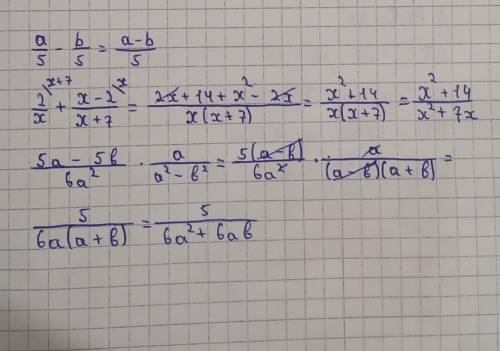 a/5 - b/5 = (a-b)/5
2/x \x+7 + (x-2)/(x+7) \x = (2x+14+x²-2x)/(x(x+7)) = (x²+14)/(x(x+7)) = (x²+14)/(x²+7x)
(5a-5b)/(6a²) · a/(a²-b²) = 5(a-b)/(6a²) · a/((a-b)(a+b)) =
5/(6a(a+b)) = 5/(6a²+6ab)